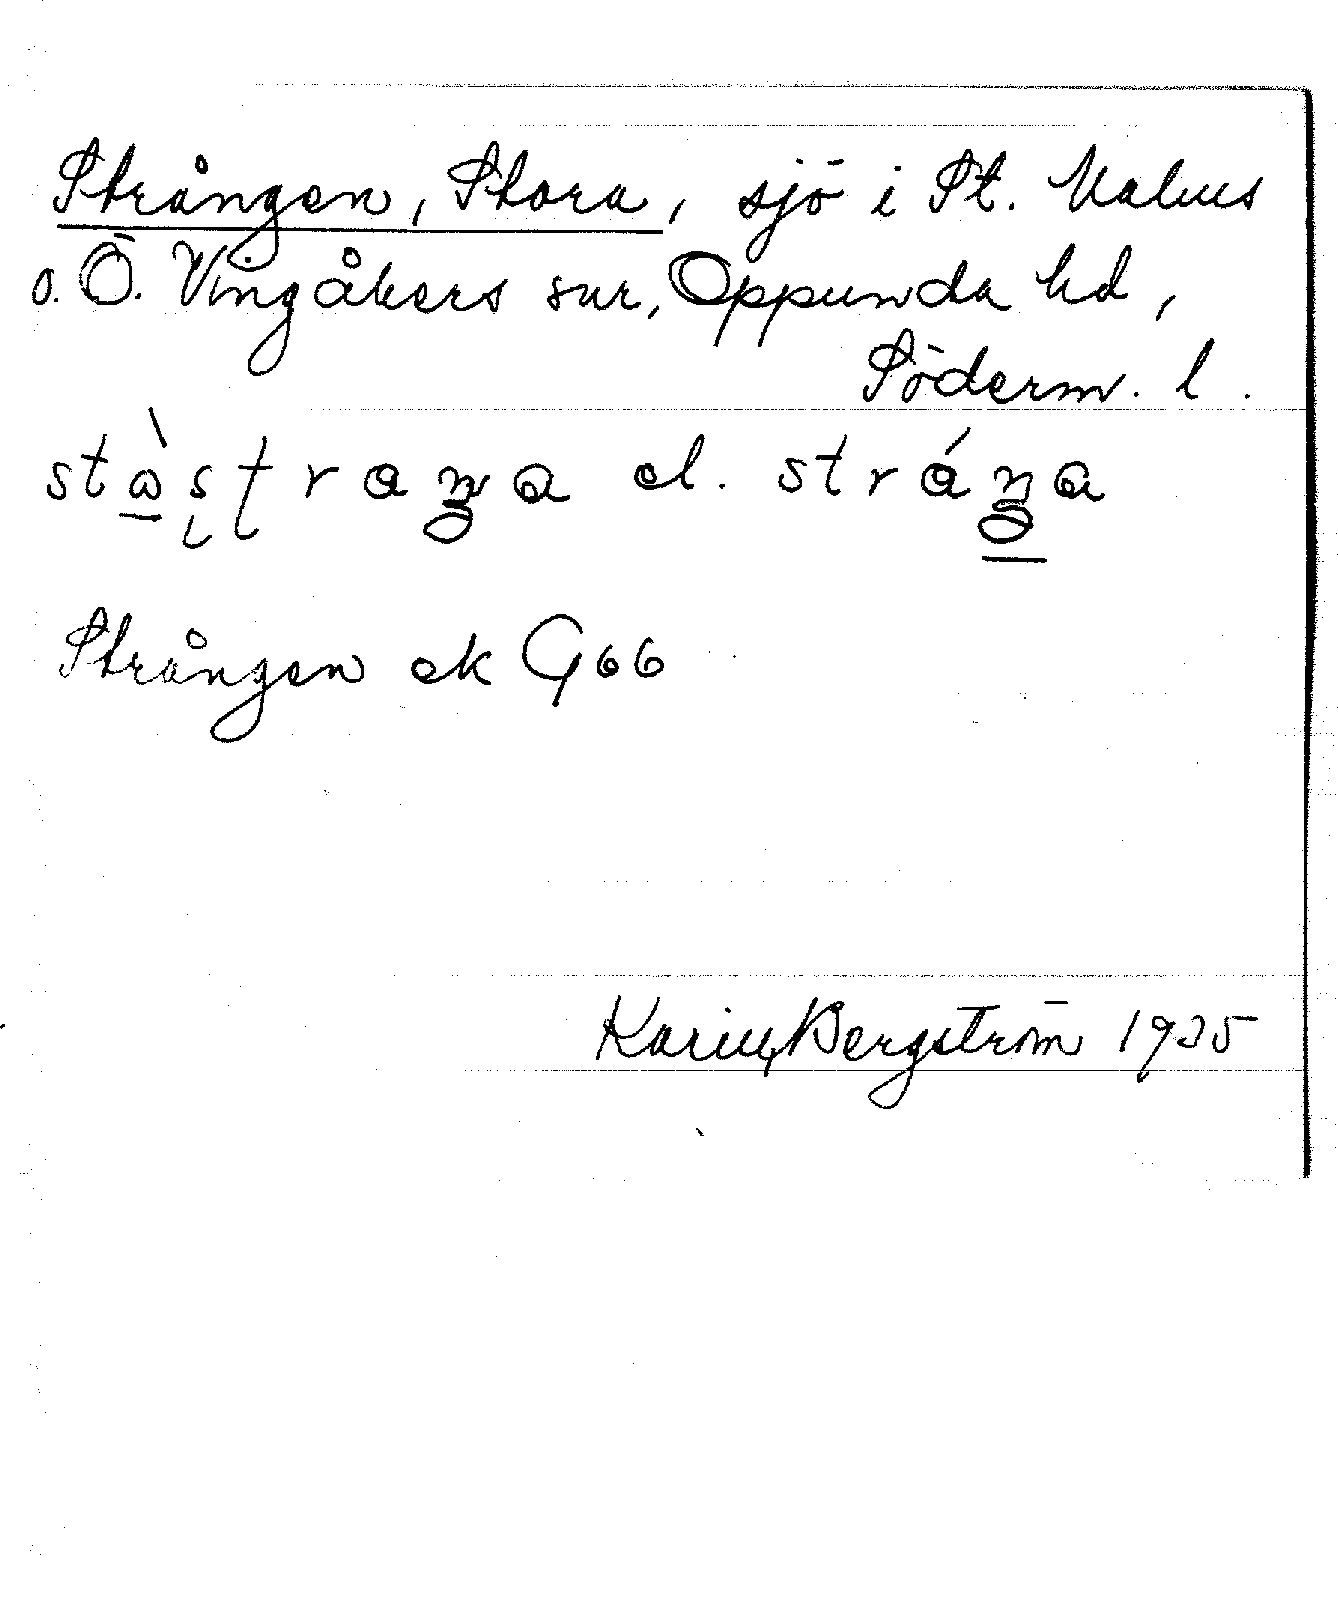 Strången, Stora, sjö i St. Malms
o. Ö. Vingåkers snr, Oppunda hd,
Söderm. l.
el.
Strången ek G 66
Karin Bergström 1935